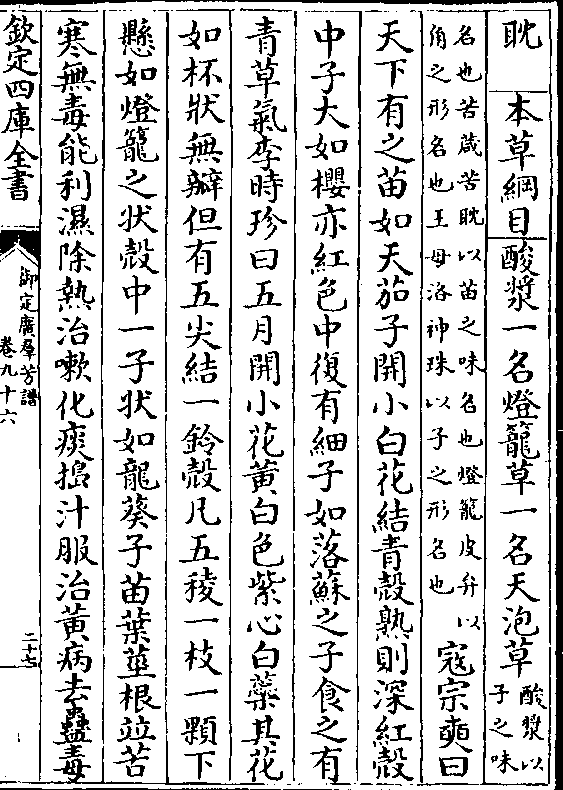 耽　本草綱目酸漿一名燈籠草一名天泡草酸漿以子之味
名也苦蔵苦耽以苗之味名也燈籠皮弁以角之形名也王母洛神珠以子之形名也　寇宗奭曰
天下有之苗如天茄子開小白花結青殼熟則深紅殼
中子大如櫻亦紅色中復有細子如落蘇之子食之有
青草氣李時珍曰五月開小花黄白色紫心白蘂其花
如杯狀無瓣但有五尖結一鈴殼凡五稜一枝一顆下
懸如燈籠之狀殼中一子狀如龍葵子苗葉莖根竝苦
寒無毒能利濕除熱治嗽化痰搗汁服治黄病去蠱毒
欽定四庫全書
御定廣羣芳譜
卷九十六
二十七